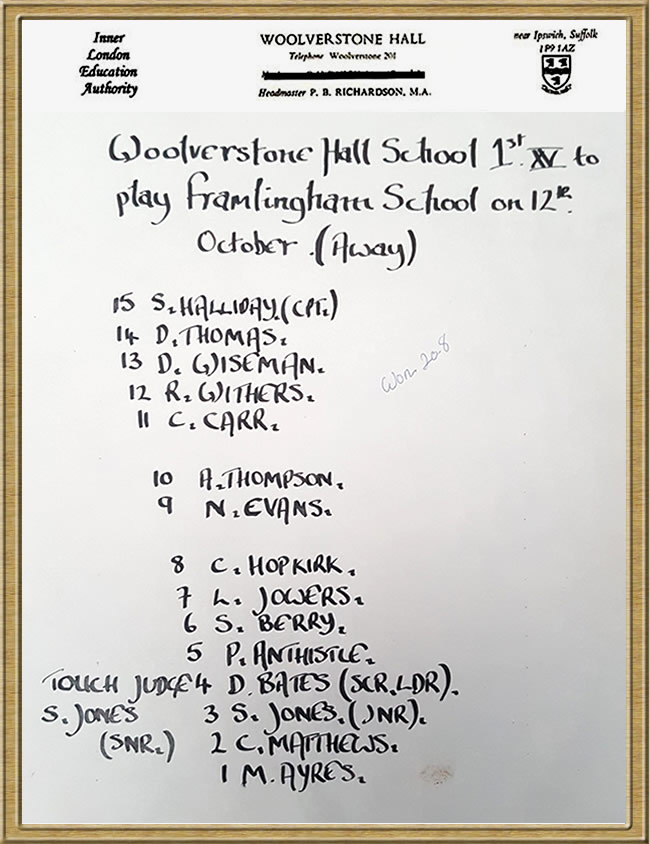 Inner
London
Education
Authority
WOOLVERSTONE HALL
Telephone Woolverstone 201
Headmaster P. B. RICHARDSON, M.A.
near Ipswich, Suffolk
IP9 1AZ
Woolverstone Hall School 1st. XV to
play Framlingham School on 12th.
October. (Away)
15 S. HALLIDAY. (CPT.)
14 D. THOMAS.
13 D. WISEMAN.
12 R. WITHERS.
11 C. CARR.
Won 20-8
10 A. THOMPSON.
9 N. EVANS.
8 C. HOPKIRK.
7 L. JOWERS.
6 S. BERRY.
5 P. ANTHISTLE.
TOUCH JUDGE 4 D. BATES (SCR. LDR).
S. JONES 3 S. JONES. (JNR).
(SNR.) 2 C. MATTHEWS.
1 M. AYRES.